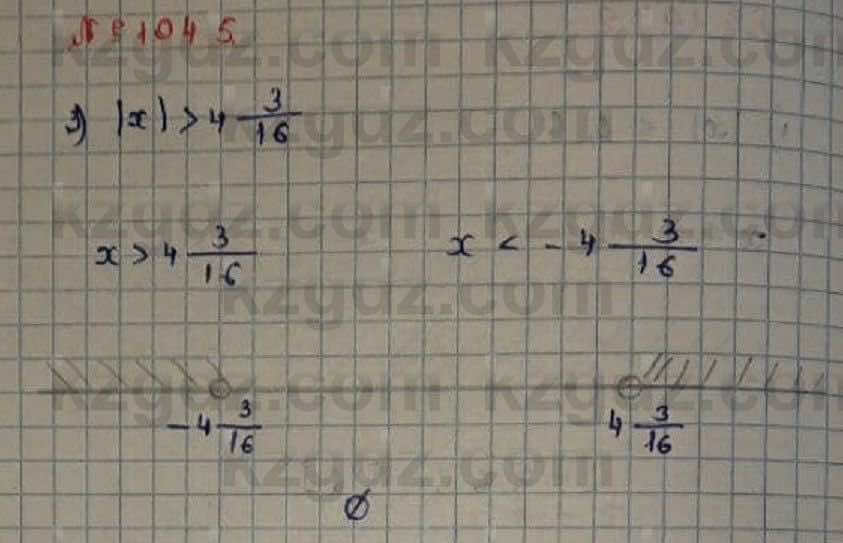 № 1045.
1) |x| > 4 3/16
x > 4 3/16 x < - 4 3/16
-4 3/16 4 3/16
∅
kzgdz.com kzgdz.com
kzgdz.com
kzgdz.com kzgdz.com
kzgdz.com
kzgdz.com kzgdz.com
kzgdz.com